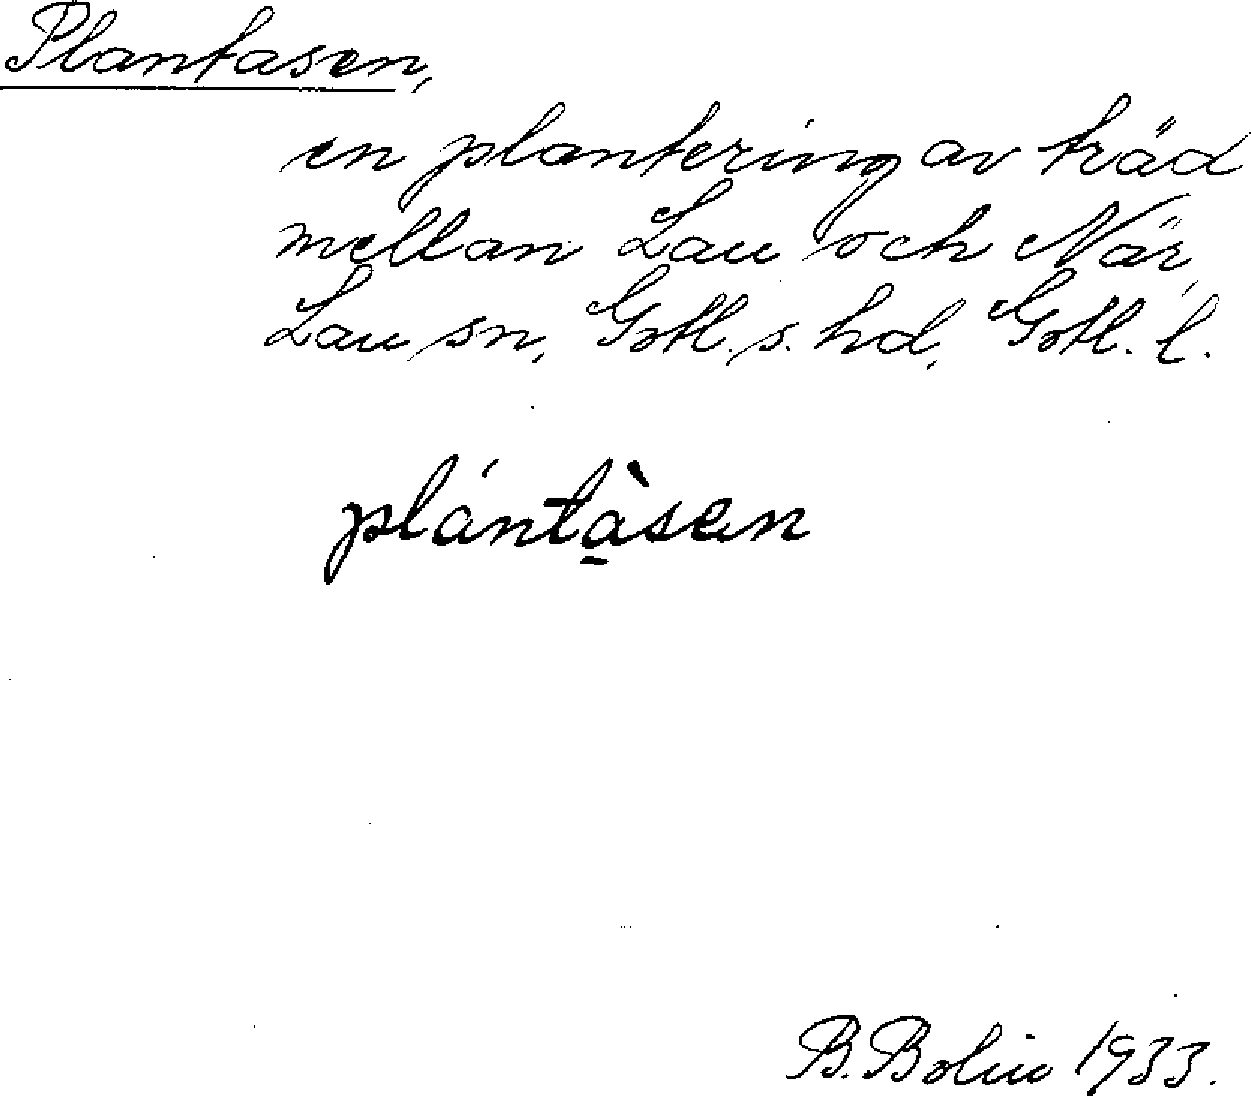 Plantasen,
en plantering av träd
mellan Lau och När,
Lau sn, Gotl. s. hd, Gotl. l.
plántàsen
B. Bolin 1933.